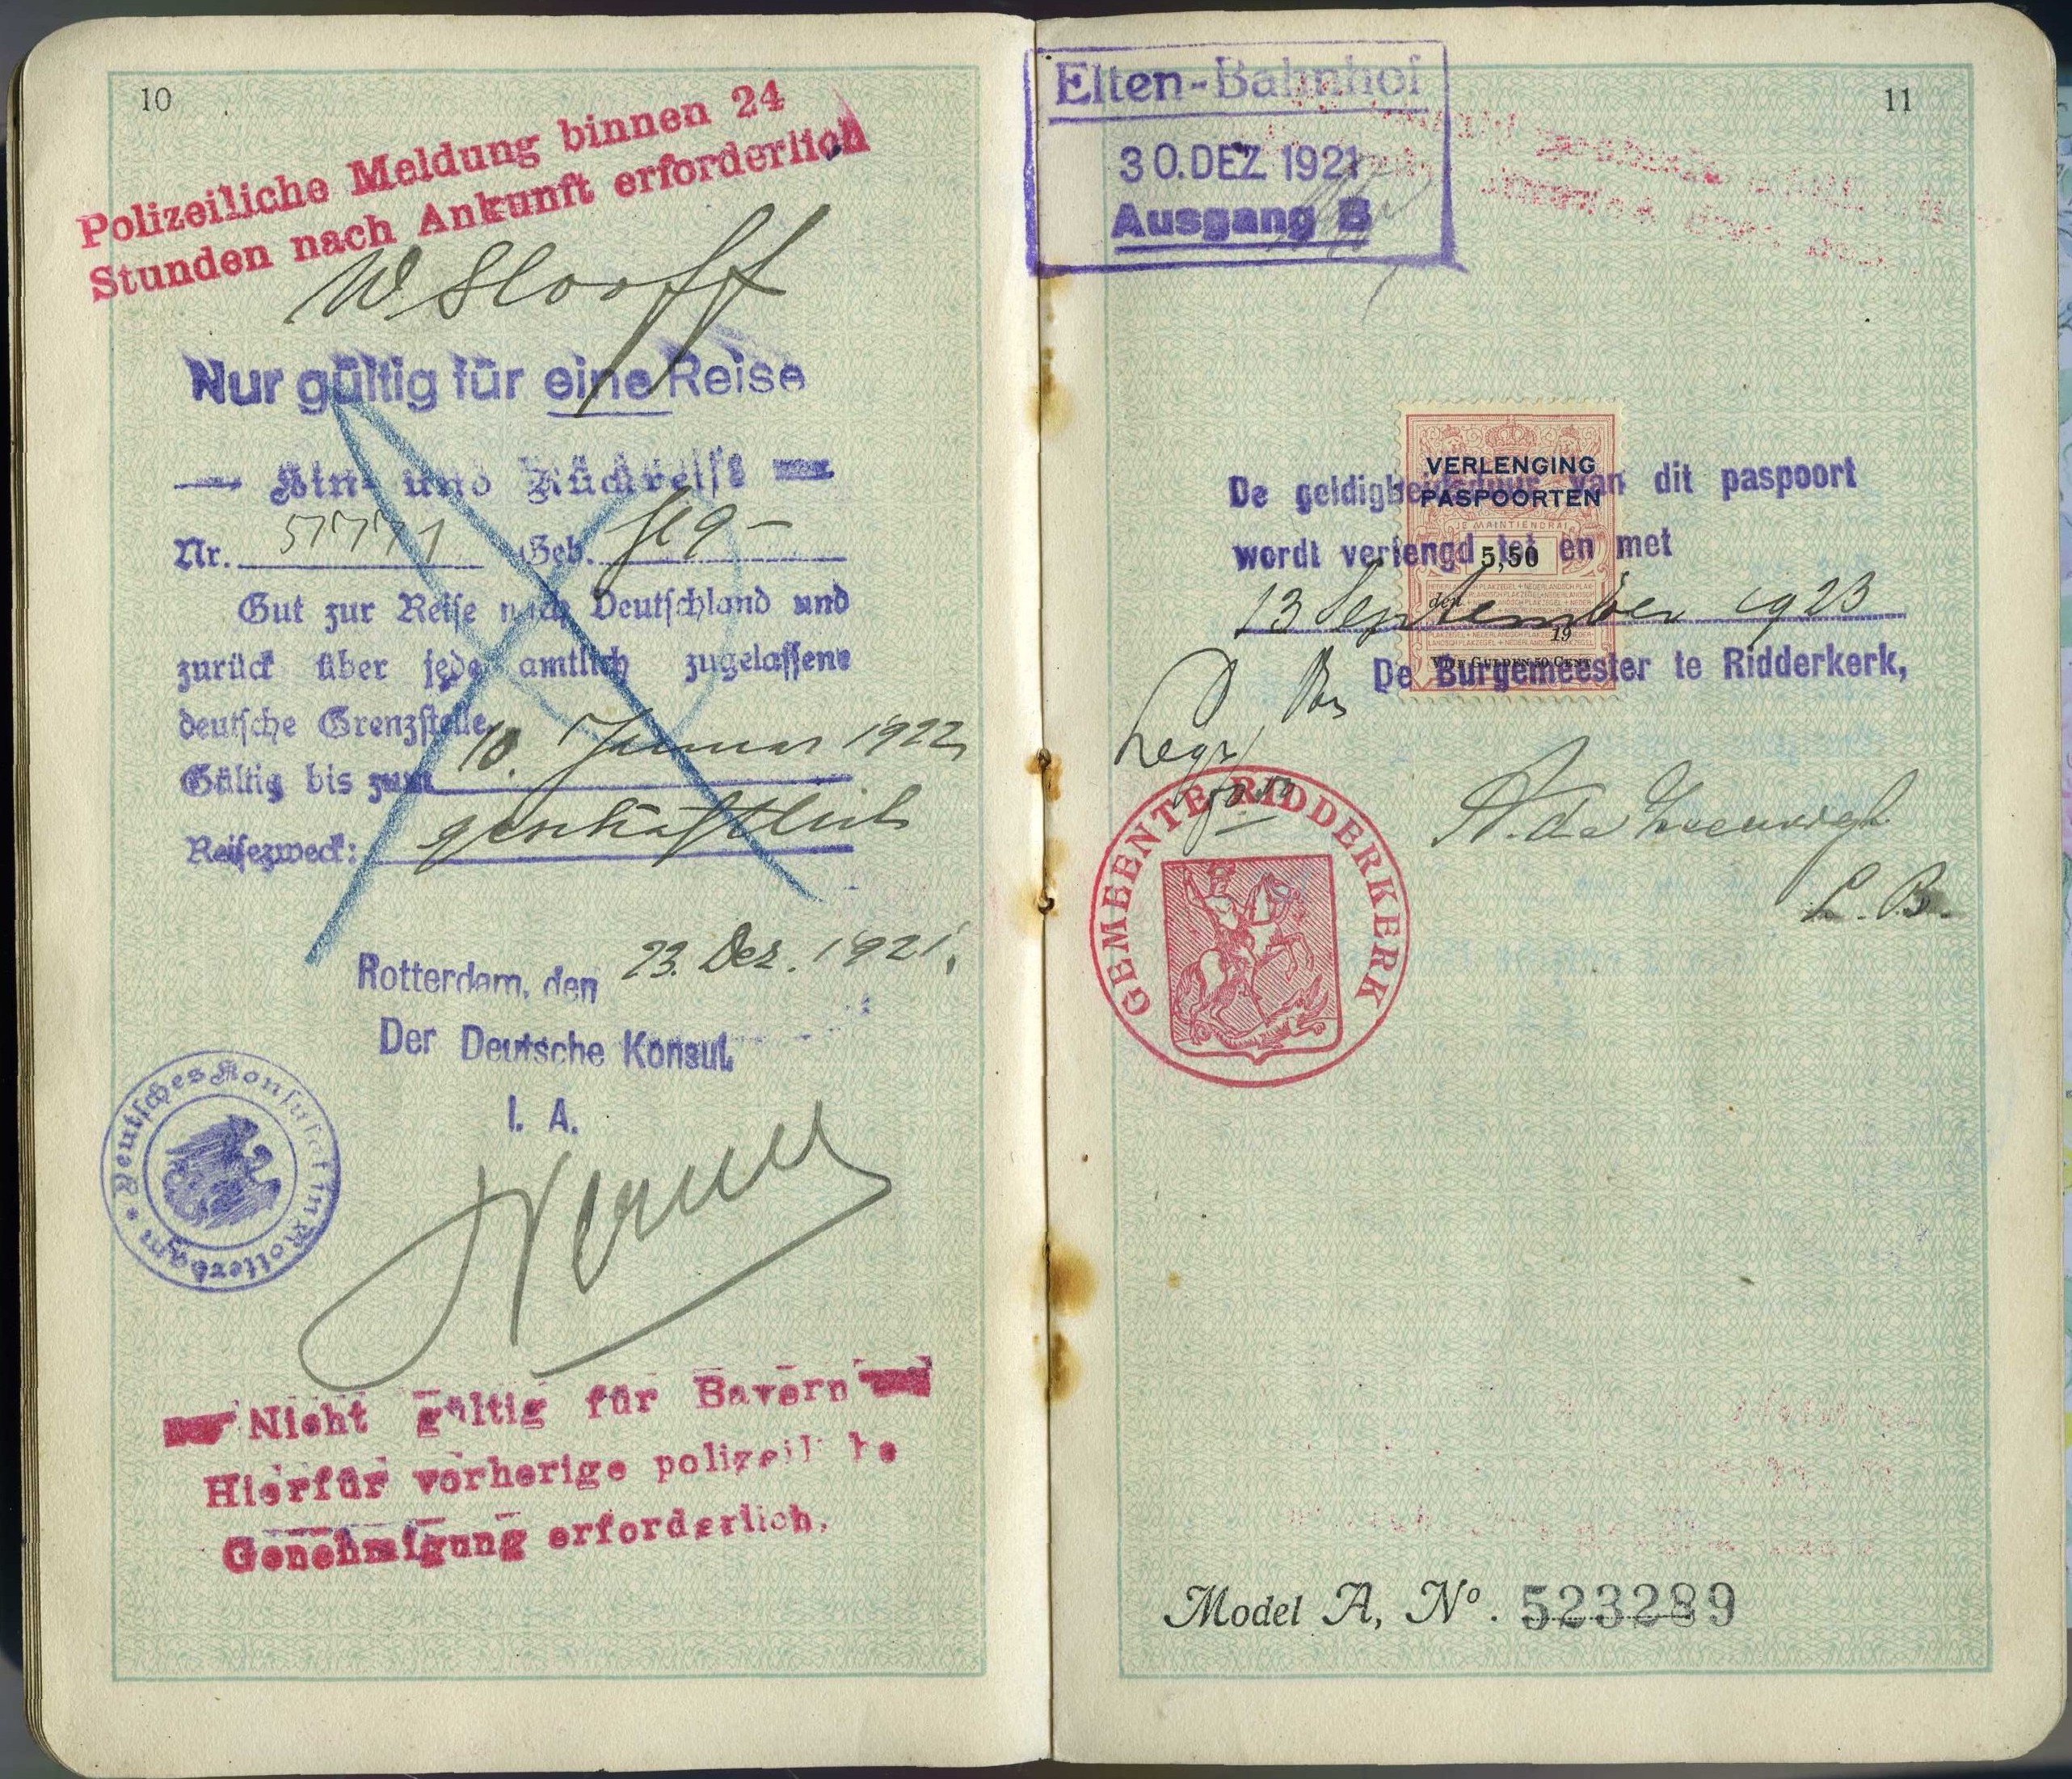 10
Polizeiliche Meldung binnen 24
Stunden nach Ankunft erforderlich
W Slooff
Nur gültig für eine Reise
— Hin- und Rückreise —
Nr. Geb.
Gut zur Reise nach Deutschland und
zurück über jede amtlich zugelassene
deutsche Grenzstelle
Gültig bis zum 10. Januar 1922
Reisezweck: geschäftlich
Rotterdam, den 23. Dez. 1921.
Der Deutsche Konsul
I. A.
Deutsches Konsulat in Rotterdam *
Nicht gültig für Bayern
Hierfür vorherige polizeiliche
Genehmigung erforderlich.
11
Elten-Bahnhof
30.DEZ 1921
Ausgang B
De geldigheidsduur van dit paspoort
wordt verlengd tot en met
13 September 1923
De Burgemeester te Ridderkerk,
VERLENGING
PASPOORTEN
JE MAINTIENDRAI
5,50
den
19
VIJF GULDEN 50 CENT
L. B.
GEMEENTE RIDDERKERK
Model A, No. 523289